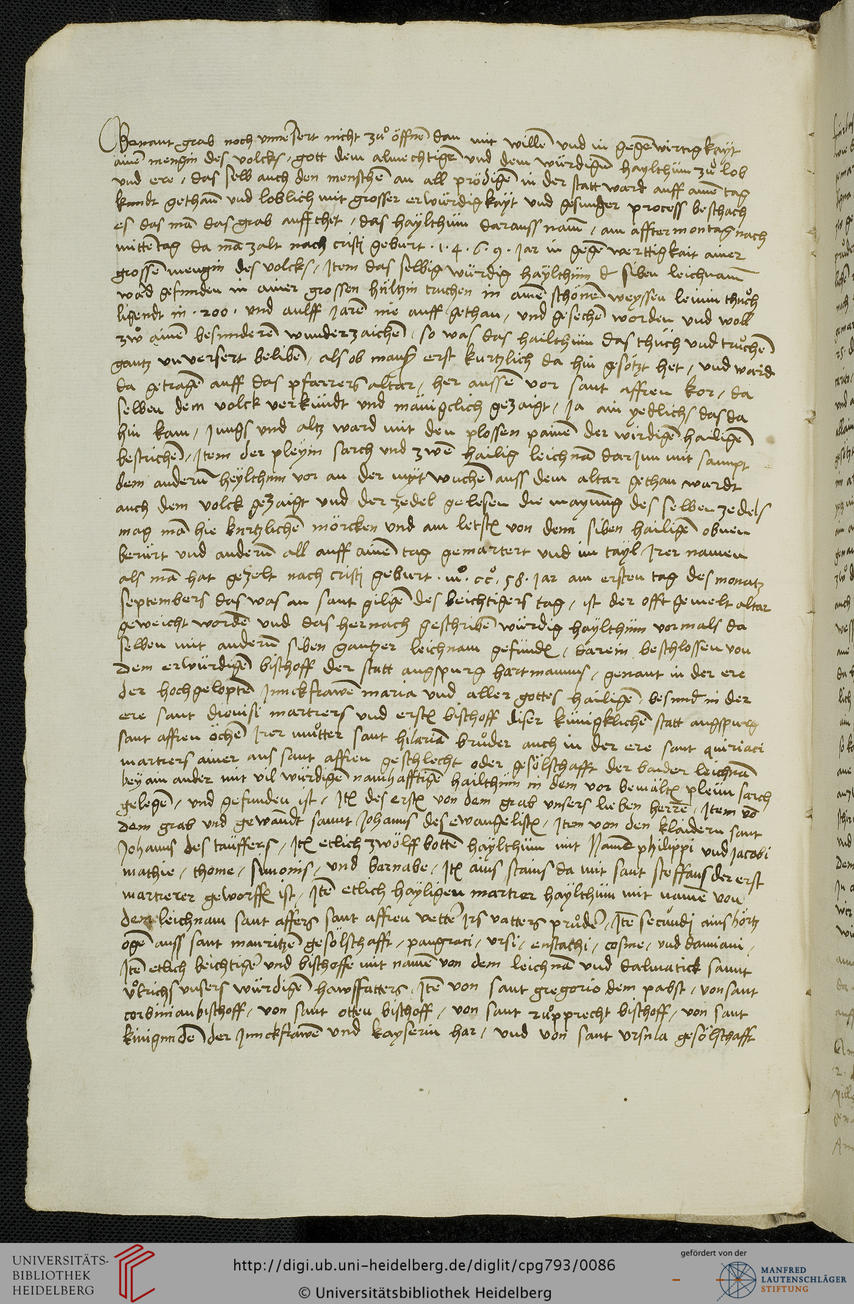 Genant grab noch vnnersert nicht zuͦ öffnē dan mit willē vnd in gegēwirtigkayt
ainer mengin des volcks / gott dem almechtigē vnd dem wurdigen haylthum zuͦ lob
vnd ere / das selb auch den menschē an all prödigē in der statt ward auff ainē tag
kundt gethan vnd loblich mit grosser erwirdigkayt vnd gesunger process beschach
es das mā das grab auffthet / das hayltum darauss nam / am afftermontag nach
mittētag da mā zalt nach cristi geburt · 1 · 4 · 6 · 9 · jar in gegē werttigkait ainer
grossē mengin des volcks / Item das selbig wirdig hayltum d siben leichnam
ward gefunden in ainer grossen hultzin truchen in ainē schönen weyssen leinin thuͦch
ligendt in · 200 · vnd aulff jarē nie auff gethan / vnd gesechē worden vnd woll
zwͦ ainen besunderē wunderzaichē / so was das hailthum das thuͦch vnd truͦchē
gantz vnversert belibē / als ob mans erst kurtzlich da hin gesötzt het / vnd ward
da getragē auff das pfarrers altar / her aussē vor sant affren kor / da
selben dem volck verkündt vnd mänigclich gezaigt / ja ain yedlichs das da
hin kam / jungs vnd altz ward mit den plossen painē der wirdigē hailigē
bestrichē / Item der pleyin sarch vnd zwē hailig leichnā darjnn mit sampt
dem anderm heylthum vor an der mitwuchē auss dem altar gethan wardt
auch dem volck gezaigt vnd der zedel gelesen die maynung des selben zedels
mag mā hie kurtzlichen mörcken vnd am letstē von dem siben hailigē obnen
berürt vnd anderm all auff ainē tag gemartert vnd im tayl jrer namen
als mā hat gezelt nach cristi geburt · mͦ · ccͦ · 58 · jar am ersten tag des monatz
septembers das was an sant gilgē des beichtigers tag / ist der offt gemelt altar
geweicht wordē vnd das hernach geschribē würdig hayltum vormals da
selben mit anderm siben gantzer leichnam gefundē / darein beschlossen von
dem erwürdigē bischoff der statt augspurg hartmannus / genant in der ere
der hochgeloptē junckfrawē maria vnd aller gottes hailigē / besund in der
ere sant dionisi martrers vnd erstē bischoff diser künigklichē statt augspurg
sant affren öchen jrer muͦtter sant hilariā bruͦder auch in der ere sant quiriaci
martrers ainer aus sant affren geschlecht oder gesölschafft der baider leichnā
bey ain ander mit vil würdigen namhafftigē hailthum in dem vor bemältē pleiin sarch
gelegē / vnd gefunden ist / Itē des erstē von dem grab vnsers lieben herrē / Item vō
dem grab vnd gewandt sannt Johanns des ewangelistē / Item von den klaidern sant
Johanns des tauffers / Itē etlich zwölff botten hayltum mit Namē philippi vnd jacobi
mathie / thome / simonis / vnd barnabe / Itē ains stains da mit sant steffans der erst
martrerer geworffē ist / Itē etlich hayligen martrer hayltum mit namē von
dem leichnam sant affers sant affren vetter jrs vatters pruͦder / Itē secundi ains hörtz
ogē auss sant mauritzē gesölschafft / pangraci / vrsi / eustathi / cosme / vnd damiani /
Itē etlich beichtiger vnd bischoffe mit namē von dem leichnā vnd dalmatick sannt
vͦlrichs vnsers würdigē hawssuatters / Itē von sant gregorio dem pabst / von sant
corbinian bischoff / von sant otten bischoff / von sant ruͦpprecht bischoff / von sant
künigundē der junckfrawē vnd kayserin har / vnd von sant vrsula gesölschafft
UNIVERSITÄTS-
BIBLIOTHEK
HEIDELBERG
http://digi.ub.uni-heidelberg.de/diglit/cpg793/0086
© Universitätsbibliothek Heidelberg
gefördert von der
MANFRED
LAUTENSCHLÄGER
STIFTUNG